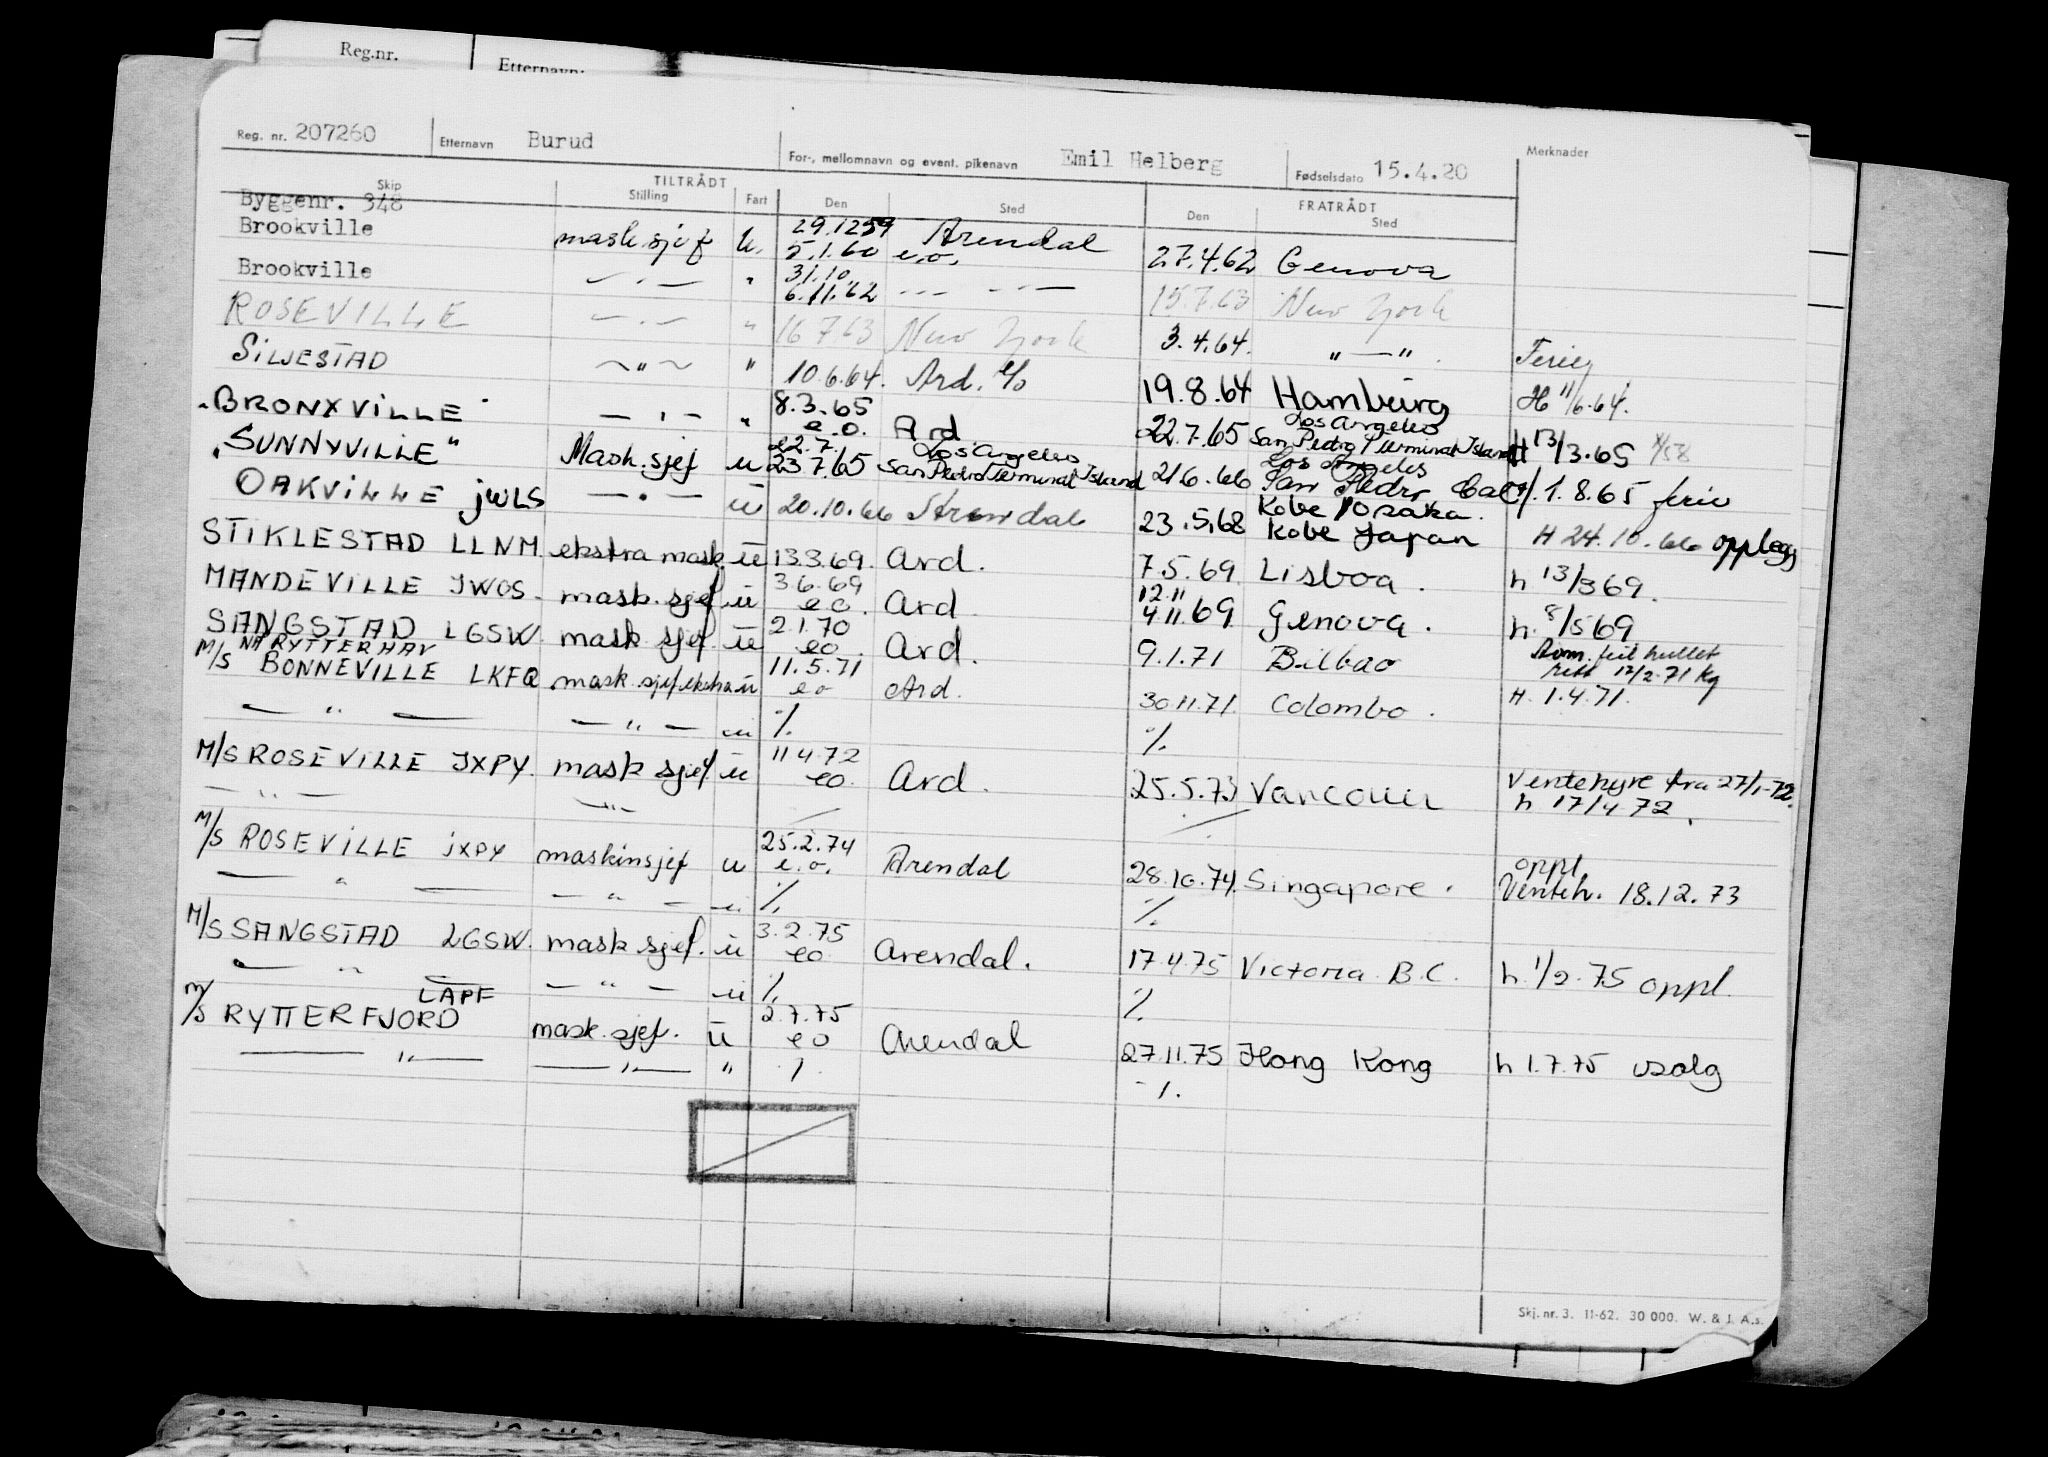 Reg.nr.
Etternavn:
Reg. nr. 207260 Etternavn Burud For-, mellomnavn og event. pikenavn Emil Helberg Fødselsdato 15.4.20 Merknader
TILTRÅDT FRATRÅDT
Skip Stilling Fart Den Sted Den Sted
Byggenr. 348 29.12 59
Brookville mask.sjef u. 5.1.60 e.o. Arendal 27.4.62 Genova
31.10.
Brookville — " — " 6.11.62 --- --— 15.7.63 New York
ROSEVILLE — " — " 16.7.63 New York 3.4.64. "—" Ferie
SILJESTAD ~ " ~ " 10.6.64. Ard. e/o 19.8.64 Hamburg H 11/6.64.
8.3.65
"BRONXVILLE" — " — " e.o. Ard 22.7.65 Los Angeles San Pedro/Terminal Island H 13/3.65
22.7. Los Angeles
"SUNNYVILLE" Mask.sjef u 23.7.65 San Pedro Terminal Island 21.6.66 Los Angeles San Pedro, Cal. 1.8.65 ferie
OAKVILLE JWLS — " — u 20.10.66 Arendal 23.5.68 Kobe/Osaka. Kobe Japan H 24.10.66 opplegg
STIKLESTAD LLNM ekstra mask. u 13.3.69. Ard. 7.5.69 Lisboa. h 13/3 69.
3.6.69 12.11
MANDEVILLE JWOS. mask.sjef u eo. Ard 4.11.69 Genova. h. 8/5 69
2.1.70
SANGSTAD LGSW. mask sjef. u eo Ard. 9.1.71 Bilbao Rom. feil hullet rett 12/2.71 Kg
NÅ RYTTERHAV 11.5.71
M/S BONNEVILLE LKFQ mask.sjef ekstra u eo Ard. 30.11.71. Colombo. H. 1.4.71.
— " — — " — u % %
11.4.72
M/S ROSEVILLE JXPY. mask sjef u eo. Ard. 25.5.73 Vancouver Ventehyre fra 27/1-72. h 17/4 72.
— " — — " — / /
25.2.74 oppl
M/S ROSEVILLE JXPY maskinsjef u e.o. Arendal 28.10.74. Singapore. Venteh. 18.12.73
— " — — " — u % %
3.2.75
M/S SANGSTAD LGSW. mask sjef. u eo Arendal. 17.4.75 Victoria B.C. h. 1/2.75 oppl.
— " — — " — u % %
LAPF 2.7.75
M/S RYTTERFJORD mask.sjef. u eo Arendal 27.11.75 Hong Kong h 1.7.75 usolg
— " — — " — " % %
Skj. nr. 3. 11-62. 30 000. W. & J. A.s.